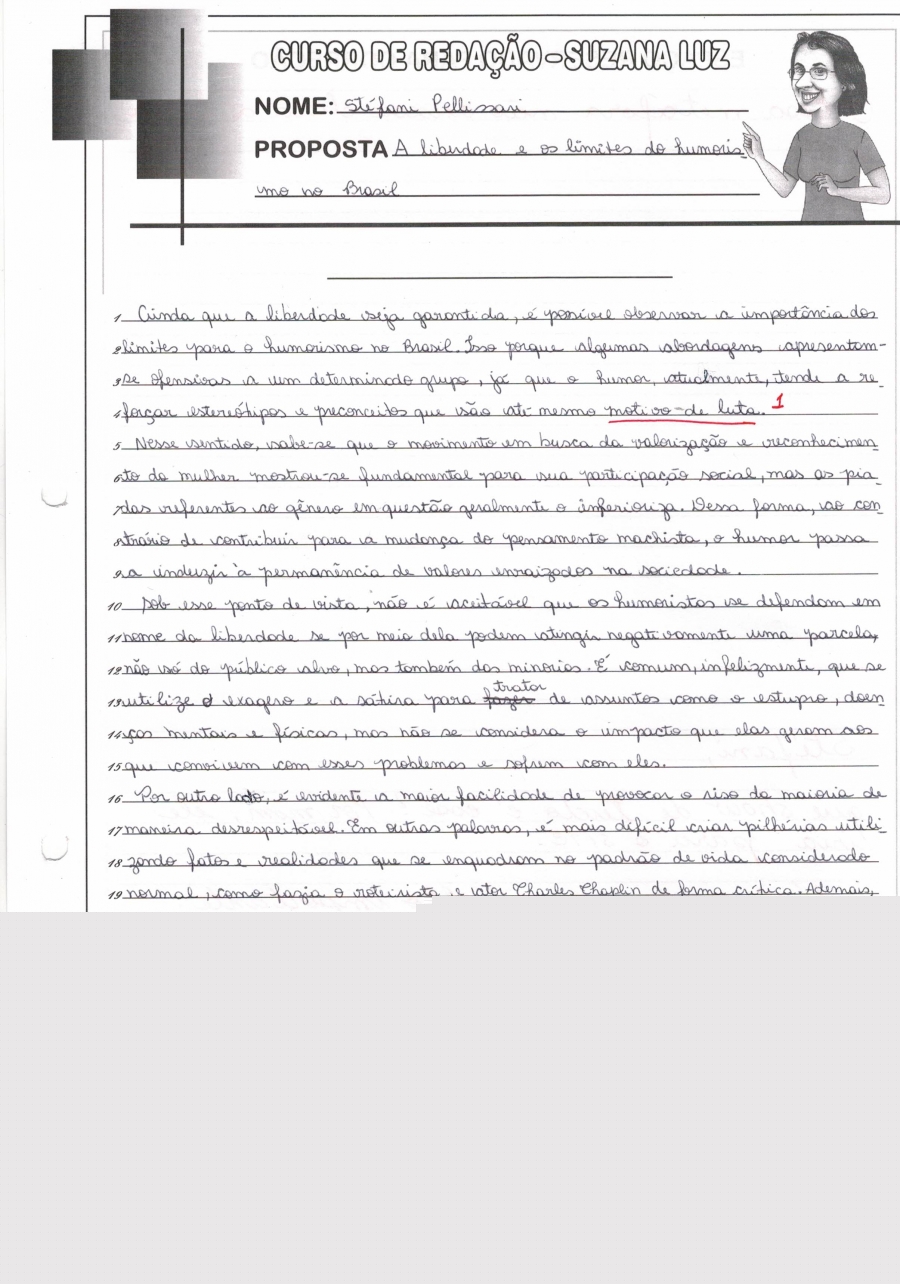 CURSO DE REDAÇÃO – SUZANA LUZ
NOME: Stéfani Pellissari
PROPOSTA A liberdade e os limites do humoris-
mo no Brasil
1 Ainda que a liberdade seja garantida, é possível observar a importância dos
2 limites para o humorismo no Brasil. Isso porque algumas abordagens apresentam-
3 se ofensivas a um determinado grupo, já que o humor, atualmente, tende a re-
4 forçar estereótipos e preconceitos que são até mesmo motivo de luta. 1
5 Nesse sentido, sabe-se que o movimento em busca da valorização e reconhecimen-
6 to da mulher mostrou-se fundamental para sua participação social, mas as pia-
7 das referentes ao gênero em questão geralmente o inferioriza. Dessa forma, ao con-
8 trário de contribuir para a mudança do pensamento machista, o humor passa
9 a induzir à permanência de valores enraizados na sociedade.
10 Sob esse ponto de vista, não é aceitável que os humoristas se defendam em
11 nome da liberdade se por meio dela podem atingir negativamente uma parcela,
12 não só do público alvo, mas também das minorias. É comum, infelizmente, que se
13 utilize o exagero e a sátira para fazer tratar de assuntos como o estupro, doen-
14 ças mentais e físicas, mas não se considera o impacto que elas geram aos
15 que convivem com esses problemas e sofrem com eles.
16 Por outro lado, é evidente a maior facilidade de provocar o riso da maioria de
17 maneira desrespeitável. Em outras palavras, é mais difícil criar pilhérias utili-
18 zando fatos e realidades que se enquadram no padrão de vida considerado
19 normal, como fazia o roteirista e ator Charles Chaplin de forma crítica. Ademais,